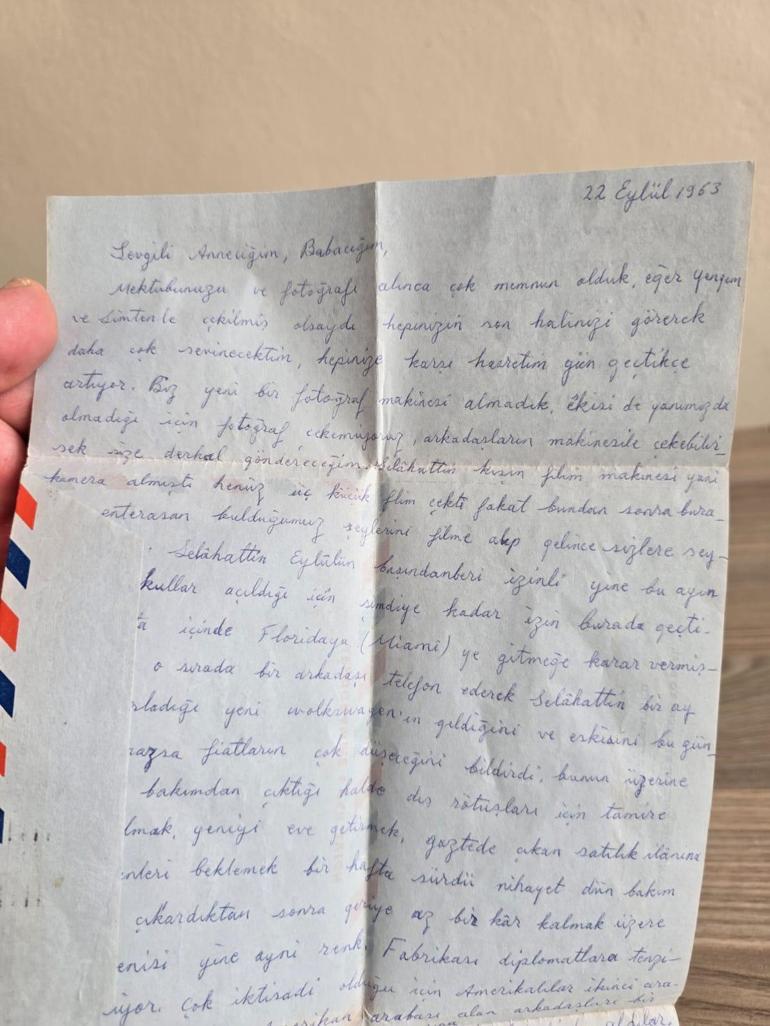 22 Eylül 1963
Sevgili Anneciğim, Babacığım,
Mektubunuzu ve fotoğrafı alınca çok memnun olduk, eğer yengem
ve Simtenle çekilmiş olsaydı hepinizin son halinizi görerek
daha çok sevinecektim, hepinize karşı hasretim gün geçtikçe
artıyor. Biz yeni bir fotoğraf makinesi almadık, ikisi de yanımızda
olmadığı için fotoğraf çekemiyoruz, arkadaşların makinesile çekebilir
sek size derhal göndereceğim. Selâhattin kışın filim makinesi yani
kamera almıştı henüz üç küçük flim çekti fakat bundan sonra bura_
enterasan bulduğumuz şeylerini filme alıp gelince sizlere sey_
Selâhattin Eylülün başındanberi izinli yine bu ayın
kullar açıldığı için şimdiye kadar izin burada geçti_
içinde Floridaya (Miami) ye gitmeğe karar vermiş_
o sırada bir arkadaşı telefon ederek Selâhattin bir ay
rladığı yeni wolkswagen'in geldiğini ve eskisini bu gün_
mazsa fiatların çok düşeceğini bildirdi, bunun üzerine
bakımdan çıktığı halde dış rötuşları için tamire
lmak, yeniyi eve getirmek, gaztede çıkan satılık ilânına
enleri beklemek bir hafta sürdü nihayet dün bakım
çıkardıktan sonra geriye az bir kâr kalmak üzere
enisi yine ayni renk. Fabrikası diplomatlara tenzi_
ıyor. Çok iktisadi olduğu için Amerikalılar ikinci ara_
erikan arabası alan arkadaşları bir